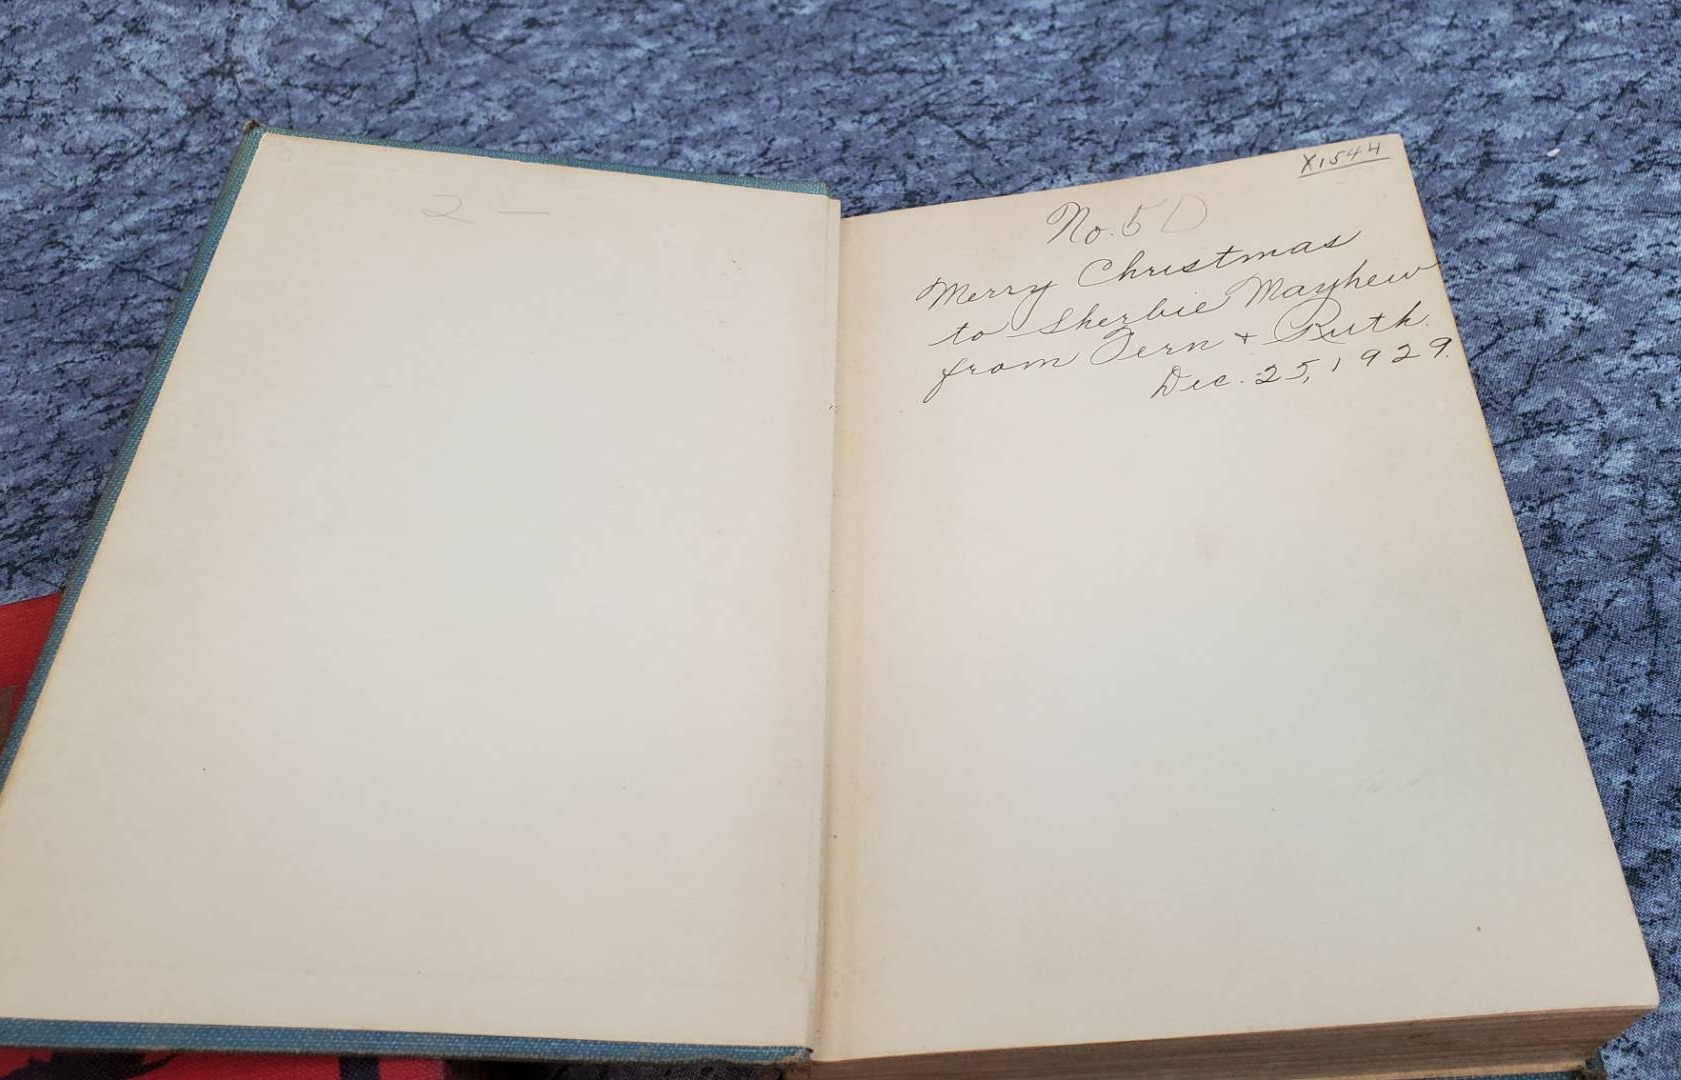 2 —
X1544
No. 5 D
Merry Christmas
to Sherbie Mayhew
from Fern + Ruth.
Dec. 25, 1929.